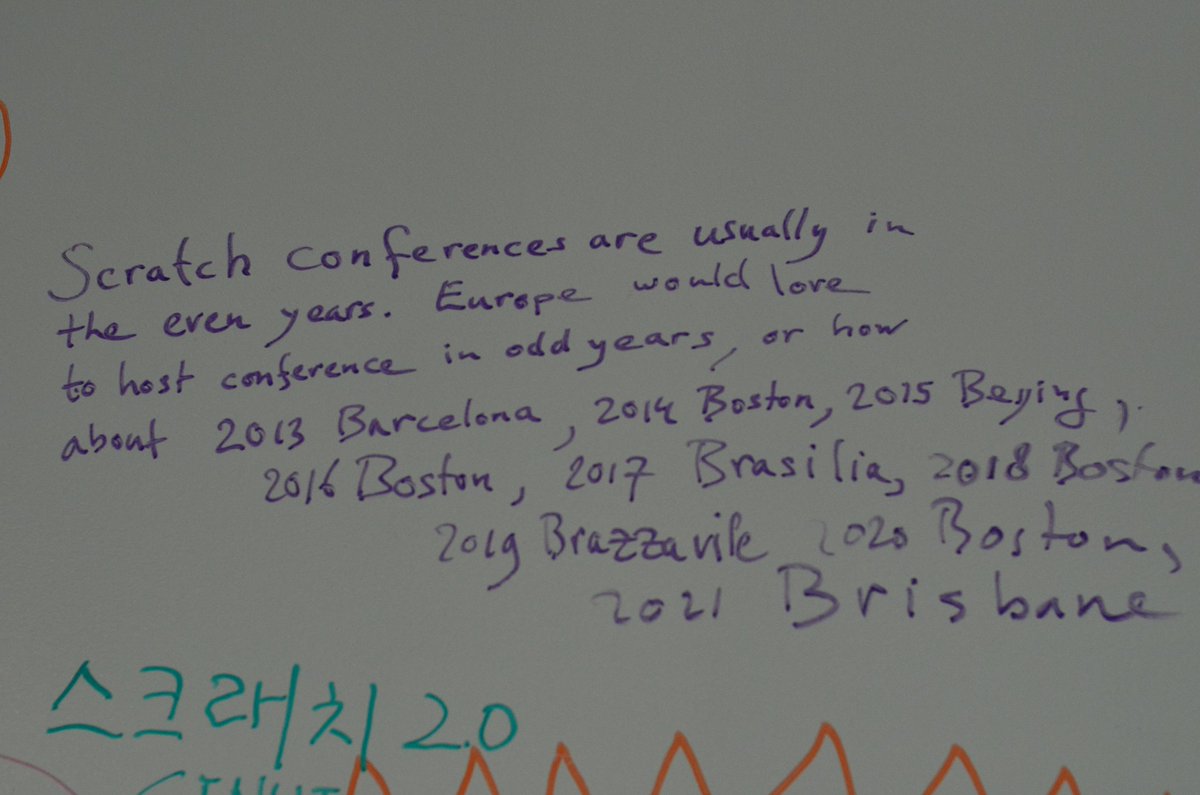 Scratch conferences are usually in
the even years. Europe would love
to host conference in odd years, or how
about 2013 Barcelona, 2014 Boston, 2015 Beijing,
2016 Boston, 2017 Brasilia, 2018 Boston
2019 Brazzavile 2020 Boston,
2021 Brisbane
스크래치 2.0